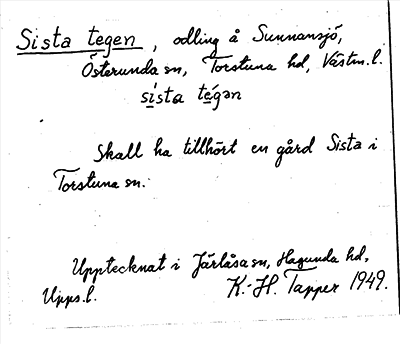 Sista tegen, odling å Sunnansjö,
Österunda sn, Torstuna hd, Västm.l.
sìsta té̱gən
Skall ha tillhört en gård Sista i
Torstuna sn.
Upptecknat i Järlåsa sn, Hagunda hd,
Upps.l. K.-H. Tapper 1949.